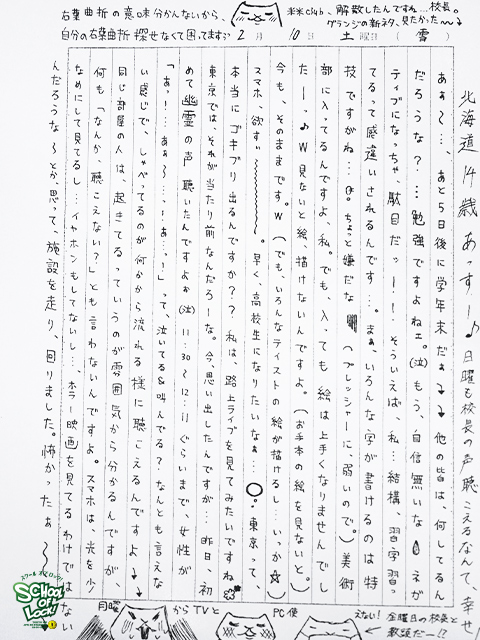 右葉曲折の意味分かんないから、
自分の右葉曲折探せなくて困ってます？
2月 10日 土曜日（雪）
米米club、解散したんですね…校長。
グランジの新ネタ、見たかった～
北海道 14歳 あっすー♪ 日曜も校長の声聴こえるなんて、幸せ
あぁ～…。あと5日後に学年末だぁ 他の皆は、何してるん
だろうな？…勉強ですよねェ。（泣）もう、自信無いな えガ
ティブになっちゃ、駄目だッーー！そういえば、私…結構、習字習っ
てるって感違いされるんです…。まぁ、いろんな字が書けるのは特
技ですがね…。ちょっと嫌だな （プレッシャーに、弱いので。）美術
部に入ってるんですよ、私。でも、入っても絵は上手くなりませんでし
たーっ♪W 見ないと絵、描けないんですよ。（お手本の絵を見ないと。）
今も、そのままです。W（でも、いろんなテイストの絵が描けるし…いっか☆）
スマホ、欲すぃ～。早く、高校生になりたいなぁ…。東京って、
本当にゴキブリ出るんですか？？私は、路上ライブを見てみたいですね
東京では、それが当たり前なんだろーな。今、思い出したんですが…昨日、初
めて幽霊の声聴いたんですよぉ（泣）11:30～12:11ぐらいまで、女性が
「あっ！…あぁ～…っ！…あぁっ！」って、泣いてる&叫んでる？なんとも言えな
い感じで、しゃべってるのが何かから流れる様に聴こえるんですよ
同じ部屋の人は、起きてるっていうのが雰囲気から分かるんですが、
何も「なんか、聴こえない？」とも言わないんですよ。スマホは、光を少
なめにして見てるし…イヤホンもしてないし…、ホラー映画を見てるわけではない
んだろうな～とか、思って、施設を走り、回りました。怖かったぁ～
月曜 からTVと PC使
えない！金曜日の校長と
教頭だー！？
スクール オブ ロック！
SCHOOL OF LOCK!